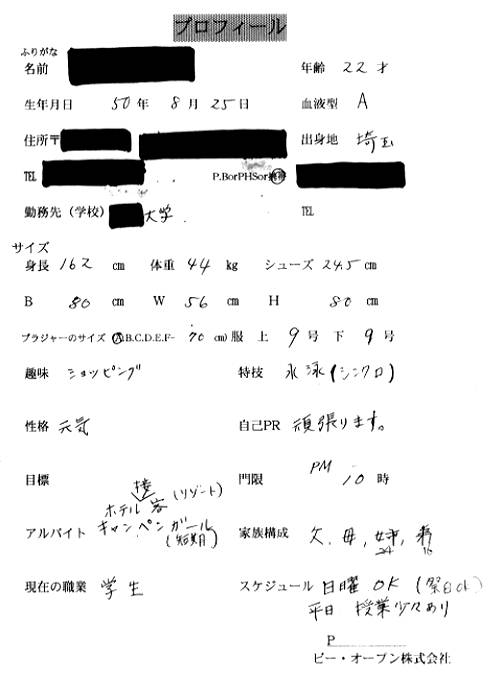 プロフィール
ふりがな
名前 年齢 22才
生年月日 50年 8月 25日 血液型 A
住所〒 出身地 埼玉
TEL P.BorPHSor携帯
勤務先（学校） 大学 TEL
サイズ
身長 162 cm 体重 44 kg シューズ 24.5 cm
B 80 cm W 56 cm H 80 cm
ブラジャーのサイズ A.B.C.D.E.F- 70 cm) 服 上 9号 下 9号
趣味 ショッピング 特技 水泳(シンクロ)
性格 元気 自己PR 頑張ります。
目標 門限 PM 10時
ホテル 接客 (リゾート)
アルバイト キャンペンガール (短期) 家族構成 父、母、姉、弟
24 16
現在の職業 学生 スケジュール 日曜 OK (祭日OK)
平日 授業少々あり
P
ビー・オーブン株式会社